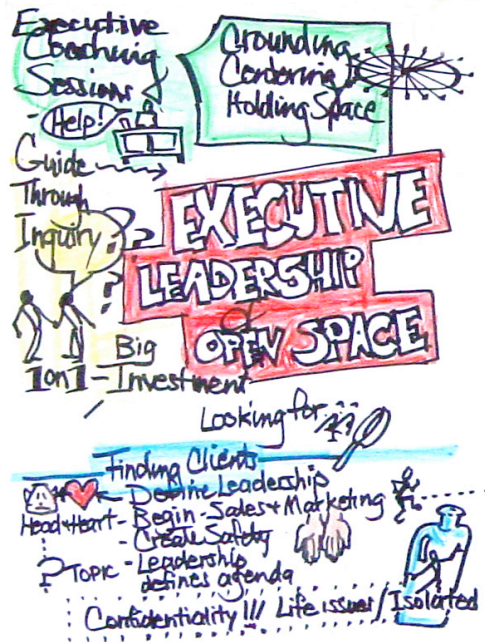 Executive
Coaching
Sessions
Grounding
Centering
Holding Space
Help!
Guide
Through
Inquiry
???
EXECUTIVE
LEADERSHIP
OPEN SPACE
Big
1 on 1 - Investment
Looking for
Finding Clients
- Define Leadership
Head + Heart - Begin - Sales + Marketing
- Create Safety
? TOPIC - Leadership
defines agenda
Confidentiality!!! Life issues / Isolated